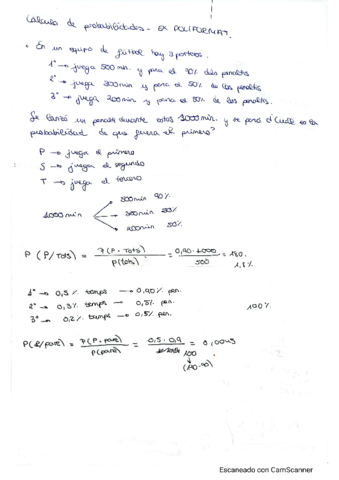 Calculo de probabilidades - ex POLIFORMAT.
• En un equipo de fútbol hay 3 porteros.
1º → juega 500 min. y para el 90% dels penaltis
2º → juega 300 min y para el 50% de los penaltis
3º → juega 200 min y para el 50% de los penaltis.
Se lanzó un penalti durante estos 1000 min. y se paró ¿Cuál es la
probabilidad de que fuera el primero?
P → juega el primero
S → juega el segundo
T → juega el tercero
500 min 90%
1000 min 300 min 50%
200 min 50%
P (P/Tots) = P(P · Tots) / P(tots) = 0,90 · 1000 / 500 = 180.
1,8%
1º → 0,5% temps → 0,90% pen.
2º → 0,3% temps → 0,5% pen. 100%
3º → 0,2% temps → 0,5% pen.
P( /paré) = P(P · paré) / P(paré) = 0,5 · 0,9 / 100 = 0,0045